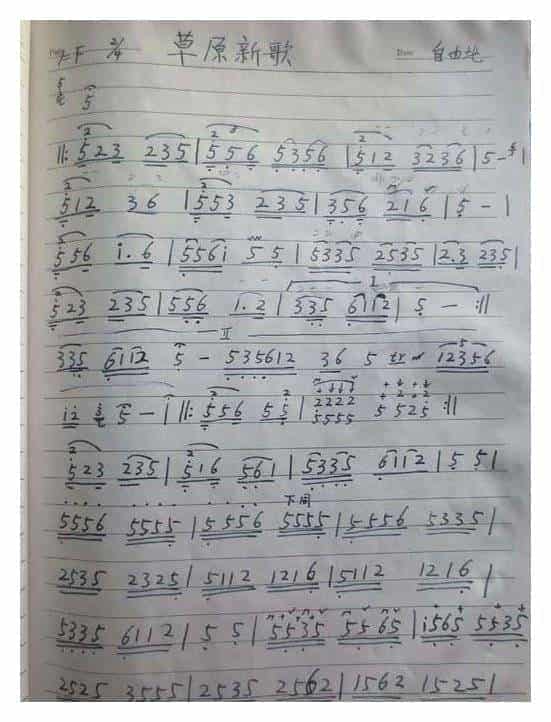 1=F 2/4 草原新歌 自由地
5
‖: 523 235 | 556 5356 | 512 3236 | 5 - |
512 36 | 553 235 | 356 216 | 5 - |
556 i.6 | 556i 5 5 | 5335 2535 | 23 235 |
523 235 | 556 1.2 | I 335 6112 | 5 - :‖
II
335 6112 5 - 535612 36 5 tr 12356
12 5 - | ‖: 556 55 | 2222 5555 5 525 :‖
523 235 | 516 561 | 5335 6112 | 5 5 |
下同
5556 5555 | 5556 5555 | 5556 5335 |
2535 2325 | 5112 1216 | 5112 1216 |
5335 6112 | 5 5 | 5535 5565 | i565 5535
2525 3555 | 2535 2562 | 1562 1525 |